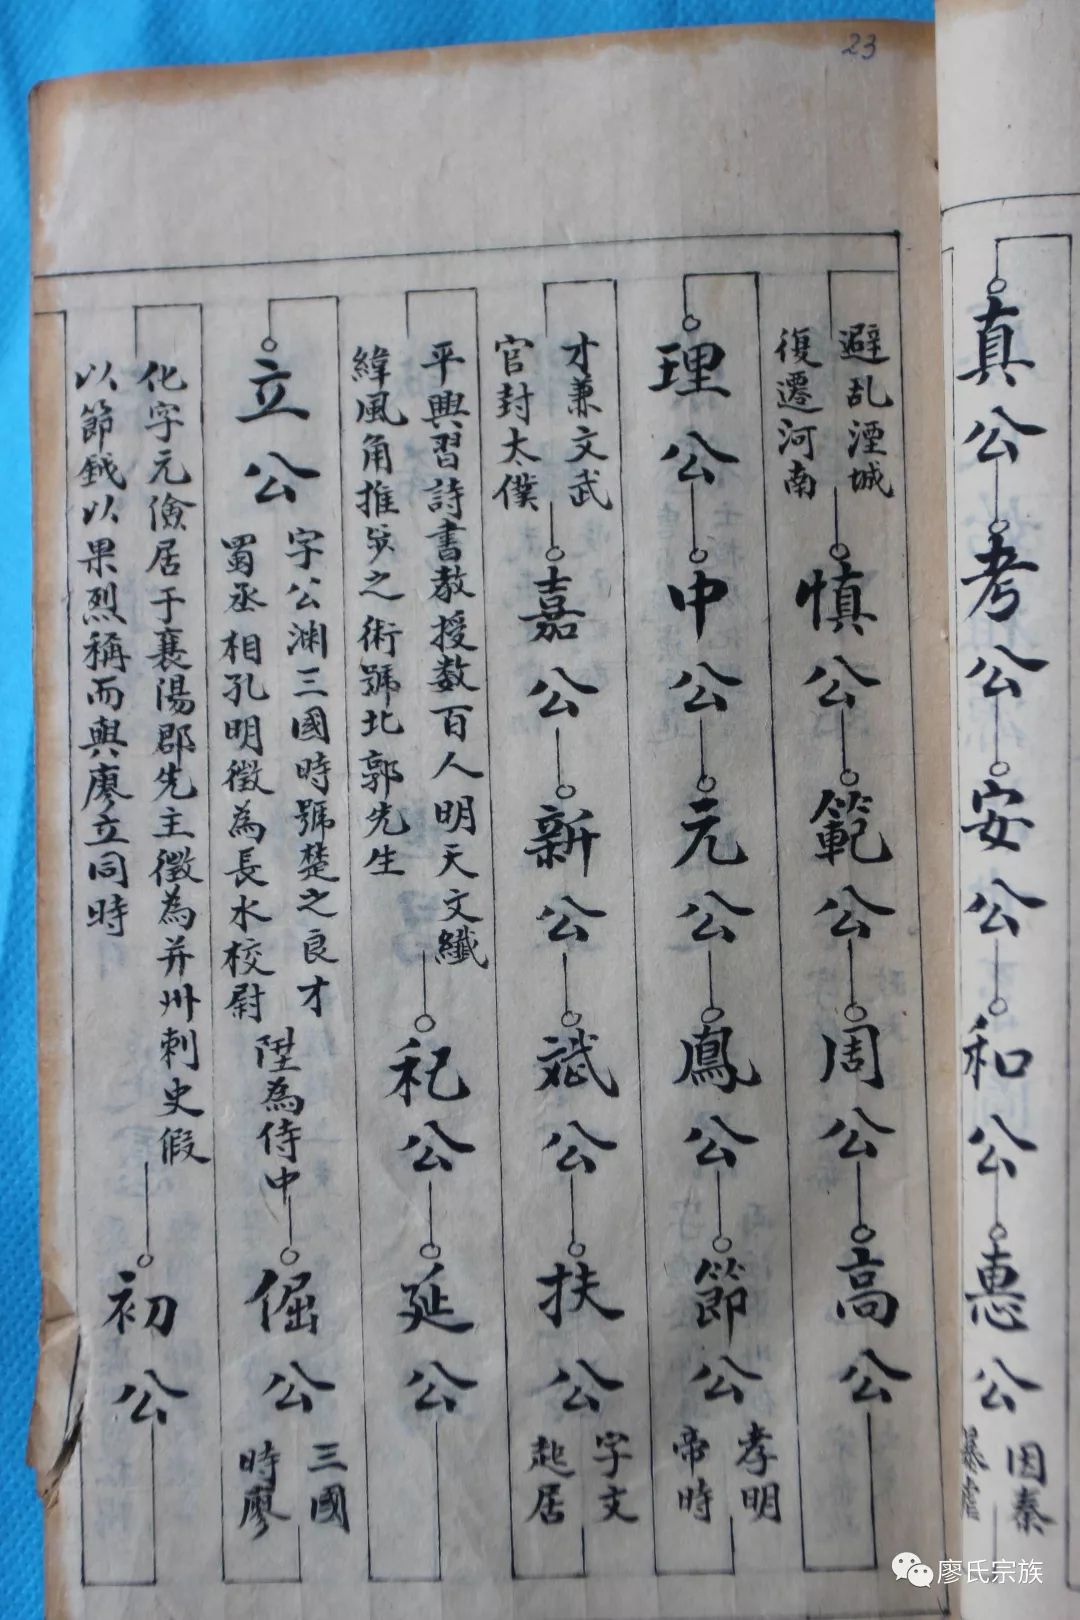 23
真公
考公
安公
和公
惠公
因秦
暴虐
避乱湮城
復遷河南
慎公
範公
周公
高公
理公
中公
元公
鳳公
節公
孝明
帝時
才兼文武
官封太僕
嘉公
新公
斌公
扶公
字文
起居
平輿習詩書教授数百人明天文纖
緯風角推步之術號北郭先生
祀公
延公
立公
字公渊三國時號楚之良才
蜀丞相孔明徵為長水校尉
陞為侍中
倔公
三國
時廖
化字元儉居于襄陽郡先主徵為并州刺史假
以節鉞以果烈稱而與廖立同時
初公
廖氏宗族